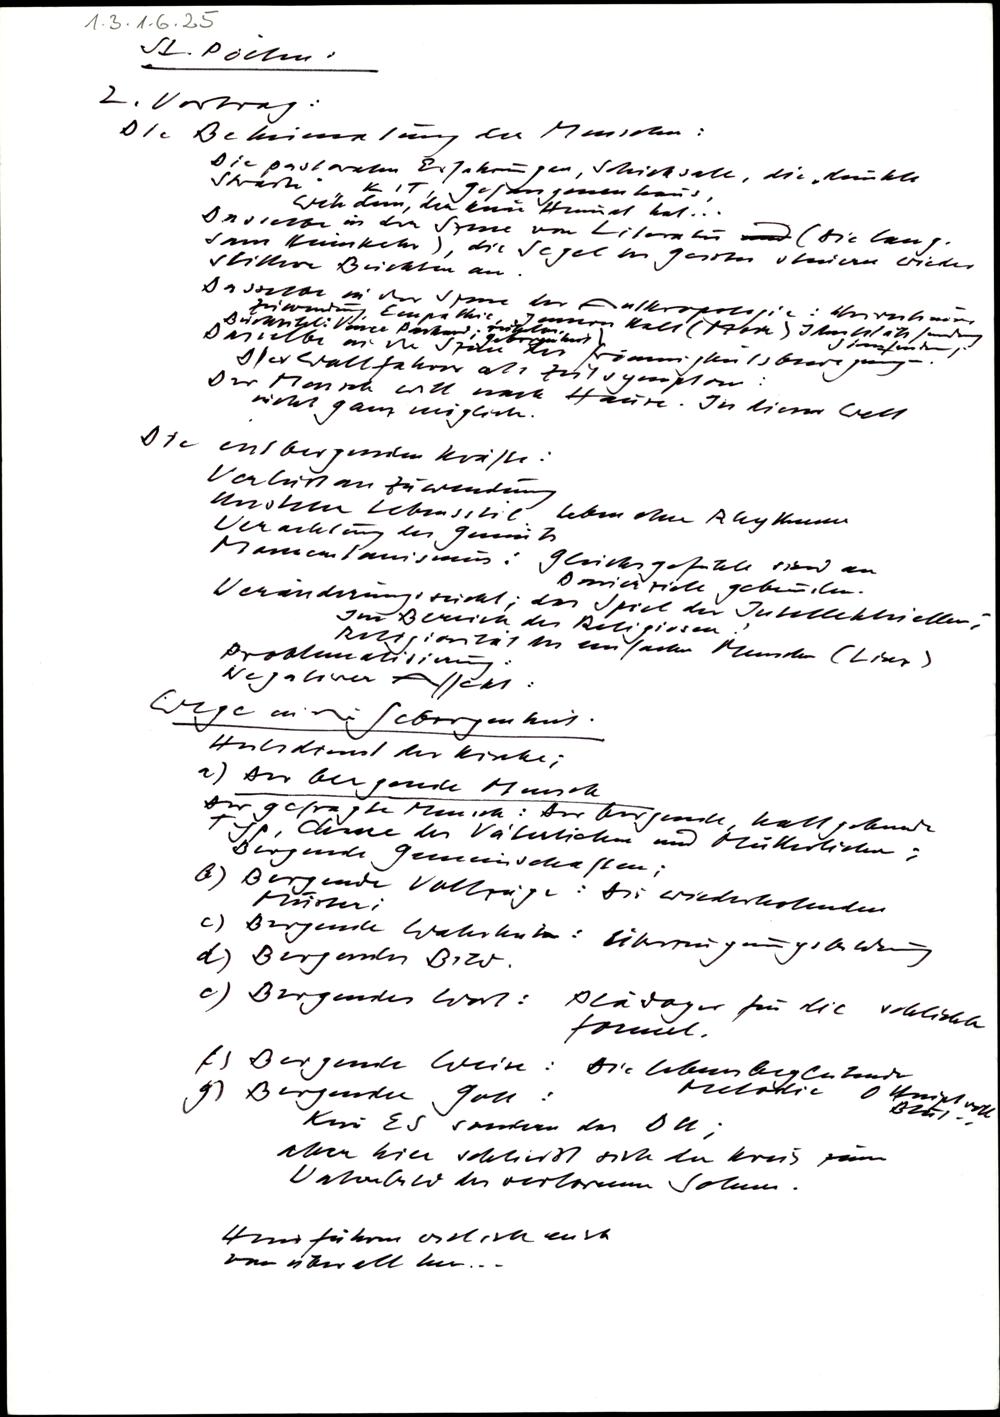 1.3.1.6.25
St. Pölten:
2. Vortrag:
Die Beheimatung des Menschen:
Die pastoralen Erfahrungen, Schicksale, die „dunkle
Straße", KIT, Gefangenenhaus,
Weh dem, der keine Heimat hat...
Dasselbe in der Szene von Literatur und (Die lang-
same Heimkehr), die Segel im Geiste steuern wieder
stillere Buchten an.
Dasselbe in der Szene der Anthropologie:
Zuwendung, Empathie, inneren Halt (Moor) Identitätsfindung
Sinnfindung;
Geborgenheit
Dasselbe in der Szene der Frömmigkeitsbewegung.
Die Wallfahrer als Zeitsymptom:
Der Mensch will nach Hause. In dieser Welt
nicht ganz möglich.
Die entbergenden Kräfte:
Verlust an Zuwendung
Unsteter Lebensstil Leben ohne Rhythmen
Verachtung des Gemüts
Momentanismus: Glücksgefühle sind an
Dauerziele gebunden.
Veränderungssucht; das Spiel der Intellektuellen;
Im Bereich des Religiösen:
Religiosität des einfachen Menschen (Liszt)
Problematisierung:
Negativer Affekt:
Wege in die Geborgenheit.
Heilsdienst der Kirche;
a) Der bergende Mensch
Der gefragte Mensch: Der bergende, haltgebende
Typ, Charme des Väterlichen und Mütterlichen;
Bergende Gemeinschaften;
b) Bergende Vollzüge: Die wiederholenden
Muster;
c) Bergende Wahrheiten: Überzeugungsbildung
d) Bergendes Bild.
e) Bergendes Wort: Plädoyer für die schlichte
Formel.
f) Bergende Weise: Die lebensbegleitende
Melodie O Haupt voll
Blut...
g) Bergender Gott:
Kein ES sondern das DU;
aber hier schließt sich der Kreis zum
Vaterbild des verlorenen Sohnes.
Heimführen will ich euch
von überall her...